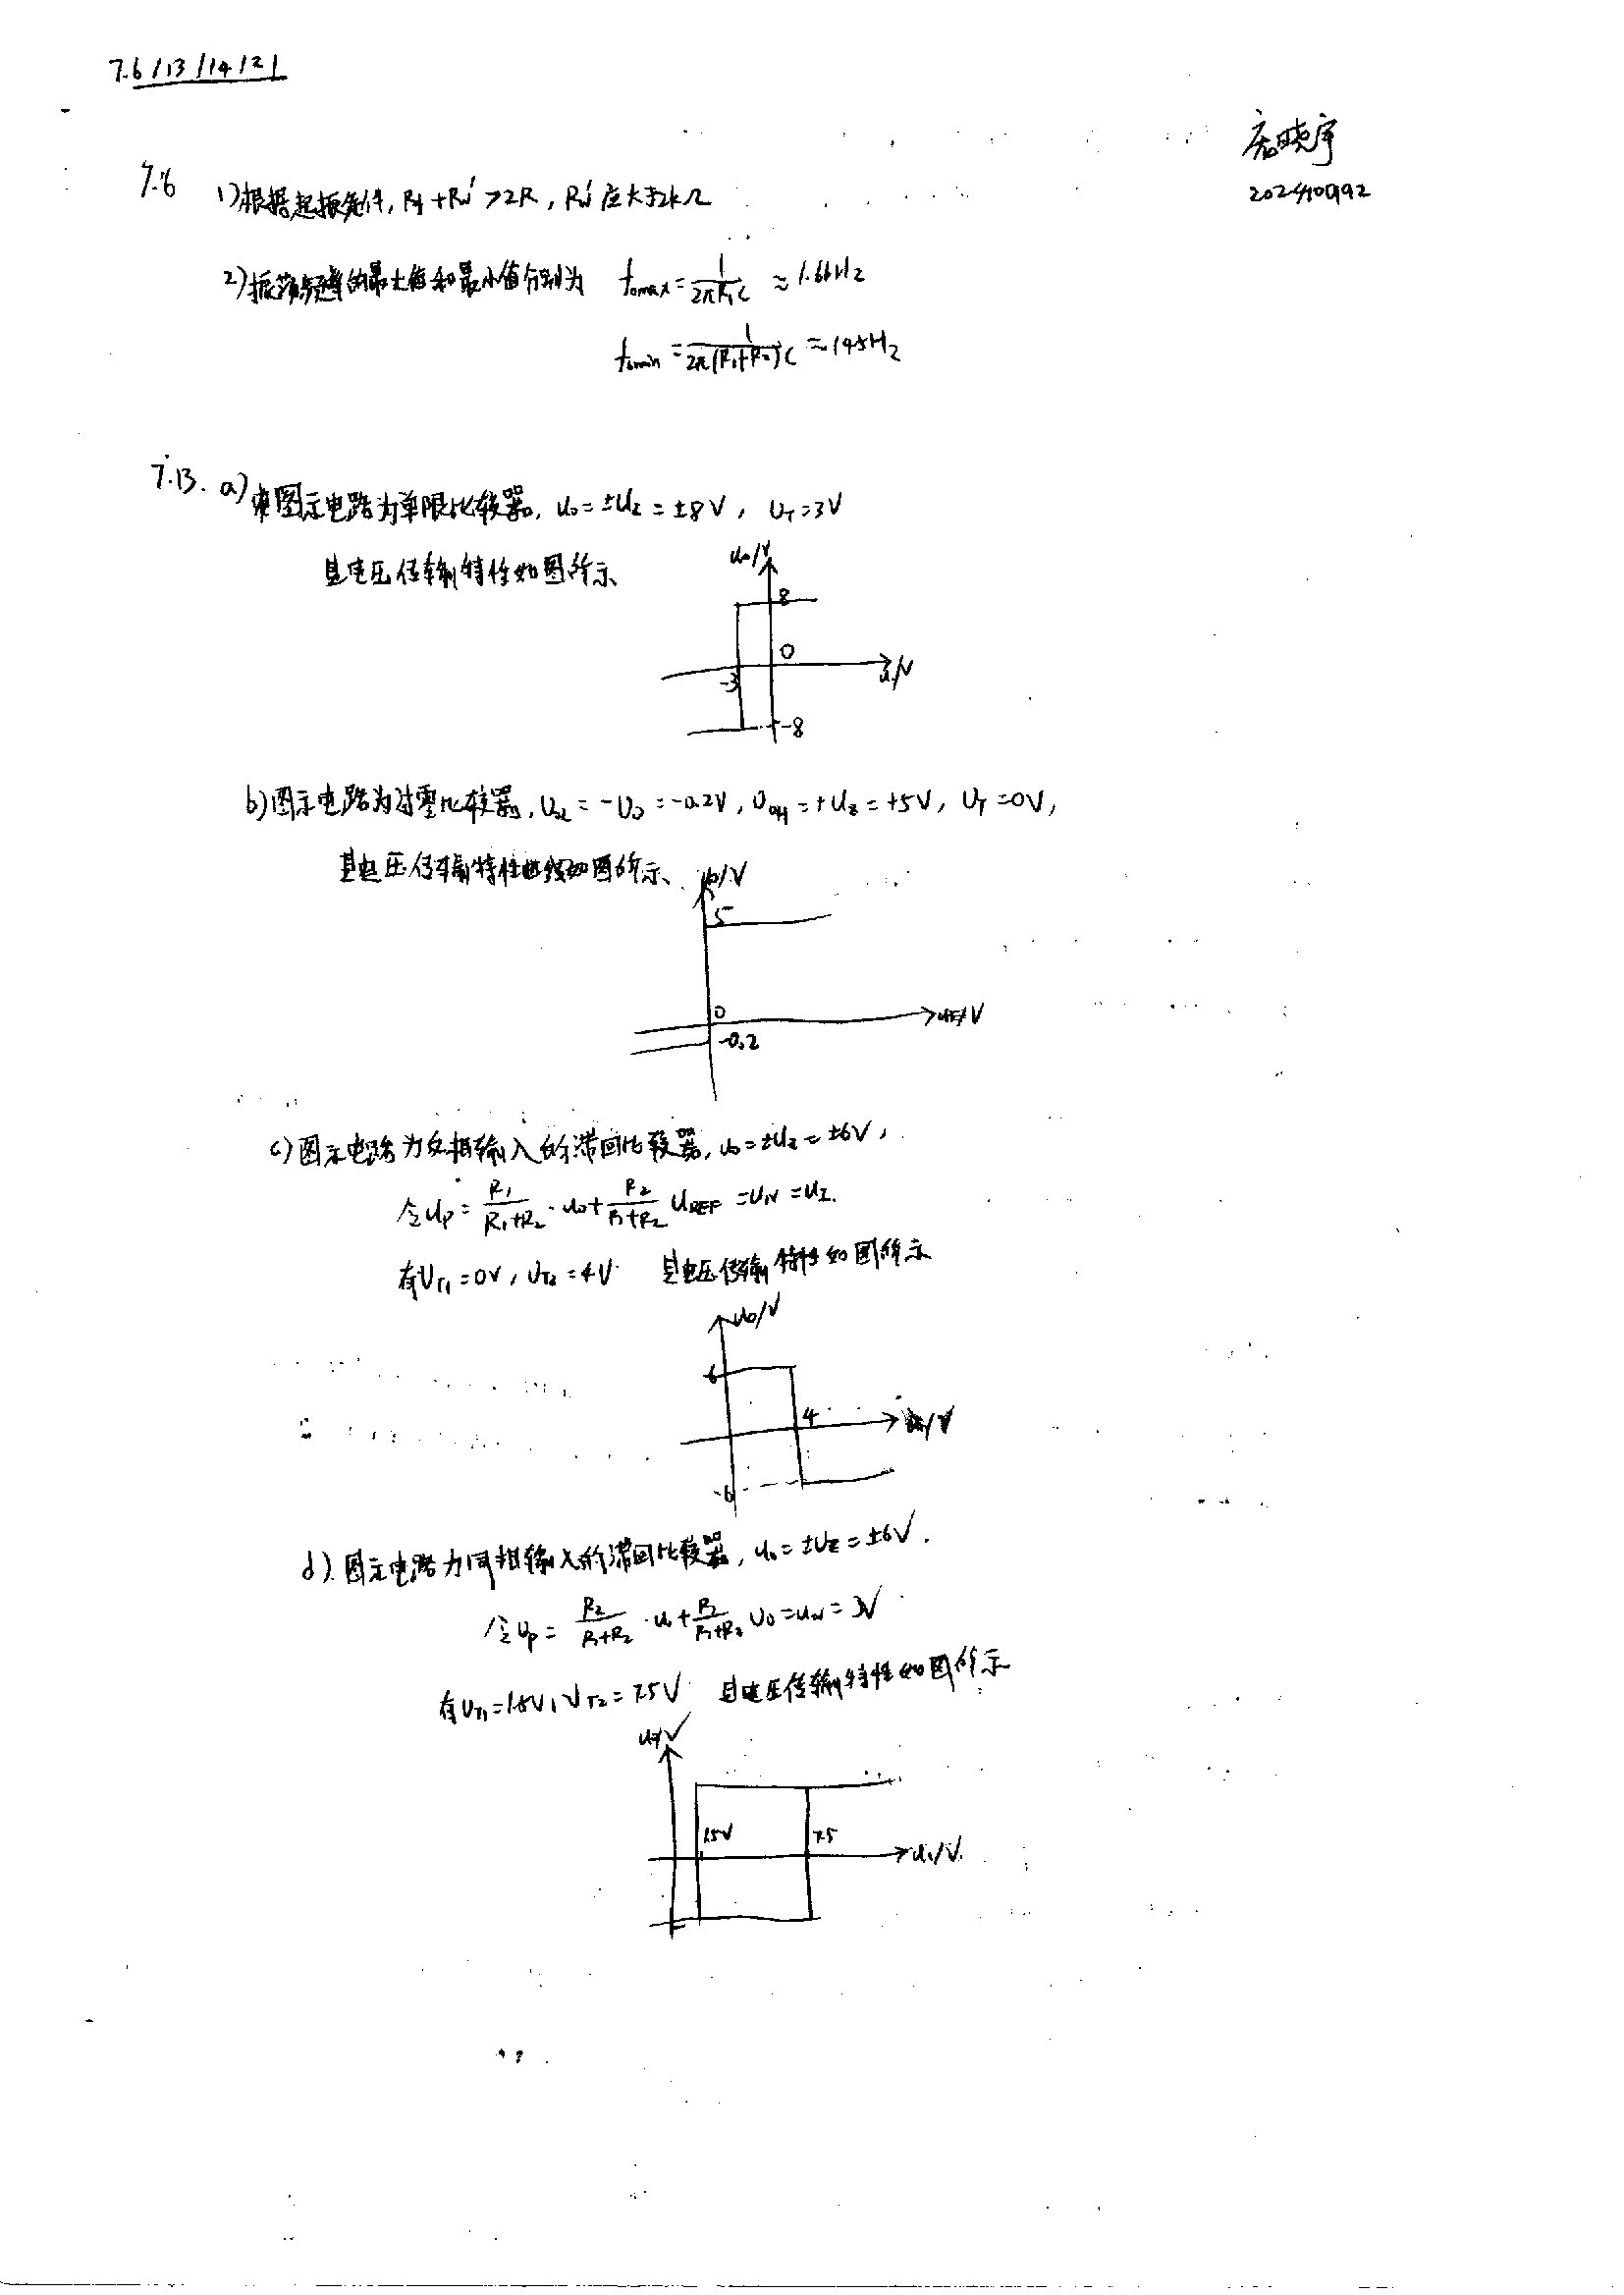 7.6/13/14/21
7.6 1)根据起振条件, Rf+Rw'>2R, Rw'应大于2kΩ
2)振荡频率的最大值和最小值分别为 f0max=1/(2πR1C)≈1.6kHz
f0min=1/(2π(R1+R2)C)≈145Hz
7.13. a)图示电路为单限比较器, uo=±Uz=±8V, UT=3V
其电压传输特性如图所示
uo/V
8
0
-3
uI/V
-8
b)图示电路为过零比较器, UOL=-UD=-0.2V, UOH=+Uz=+5V, UT=0V,
其电压传输特性曲线如图所示、
uo/V
5
0
uI/V
-0.2
c)图示电路为反相输入的滞回比较器, uo=±Uz=±6V,
令uP=R1/(R1+R2)·uo+R2/(R1+R2)UREF=uN=uI.
有UT1=0V, UT2=4V 其电压传输特性如图所示
uo/V
6
4
-6
d).图示电路为同相输入的滞回比较器, uo=±Uz=±6V.
令uP=R2/(R1+R2)·uI+R1/(R1+R2)uo=uN=3V
有UT1=1.5V, UT2=7.5V 其电压传输特性如图所示
1.5V
7.5
uI/V